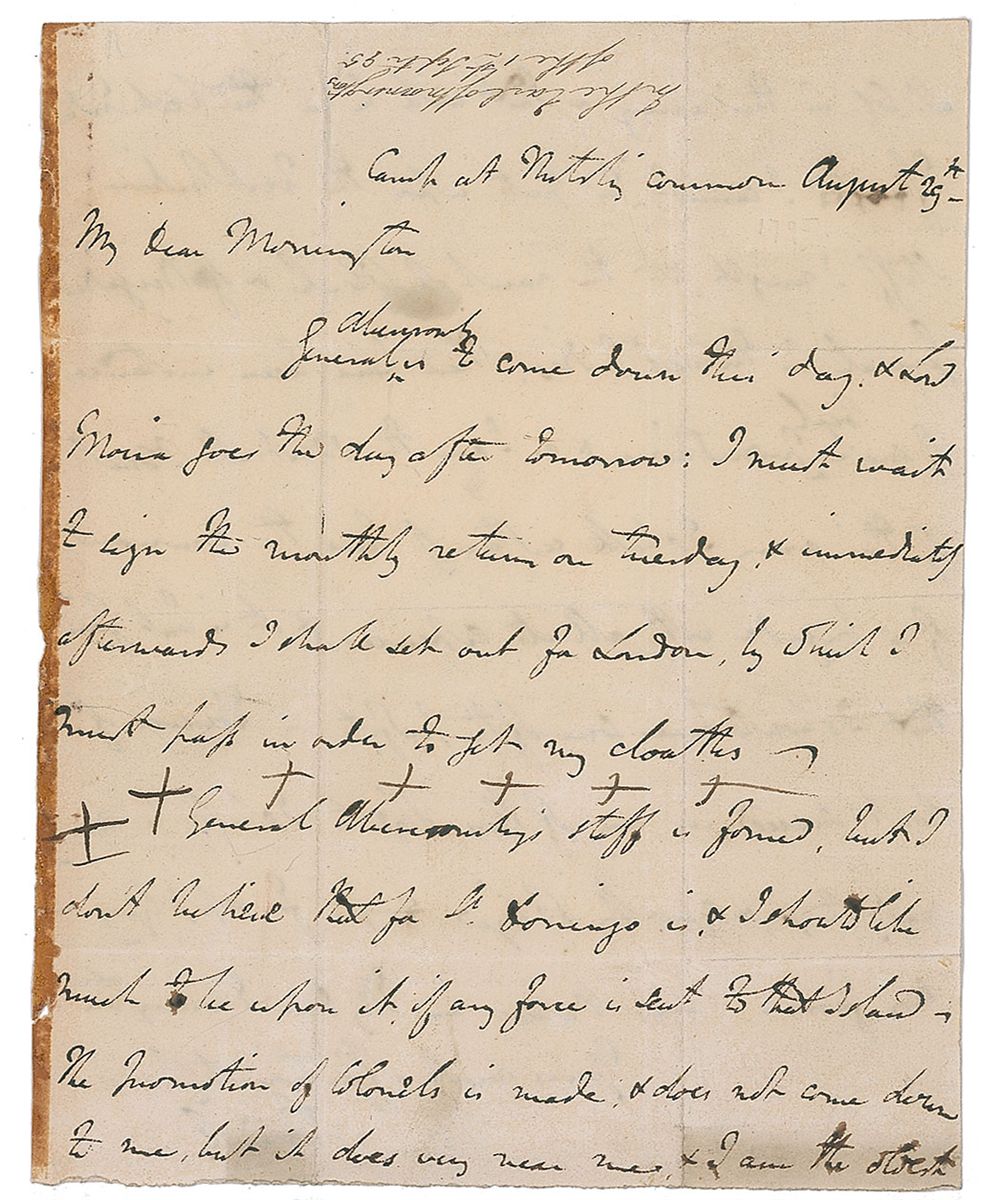 To the Earl of Mornington
of the 1st Septr 95
Camp at Netley common August 29th
My Dear Mornington
Abercromby
General is to come down this day, & Lord
Moira goes the day after tomorrow: I must wait
to sign the monthly return on tuesday, & immediately
afterwards I shall set out for London, by which I
must pass in order to get my cloathes
General Abercromby's staff is formed, but I
don't believe that for St Domingo is, & I should like
much to be upon it, if any force is sent to that Island
The promotion of Colonels is made, & does not come down
to me, but it does very near me, & I am the oldest